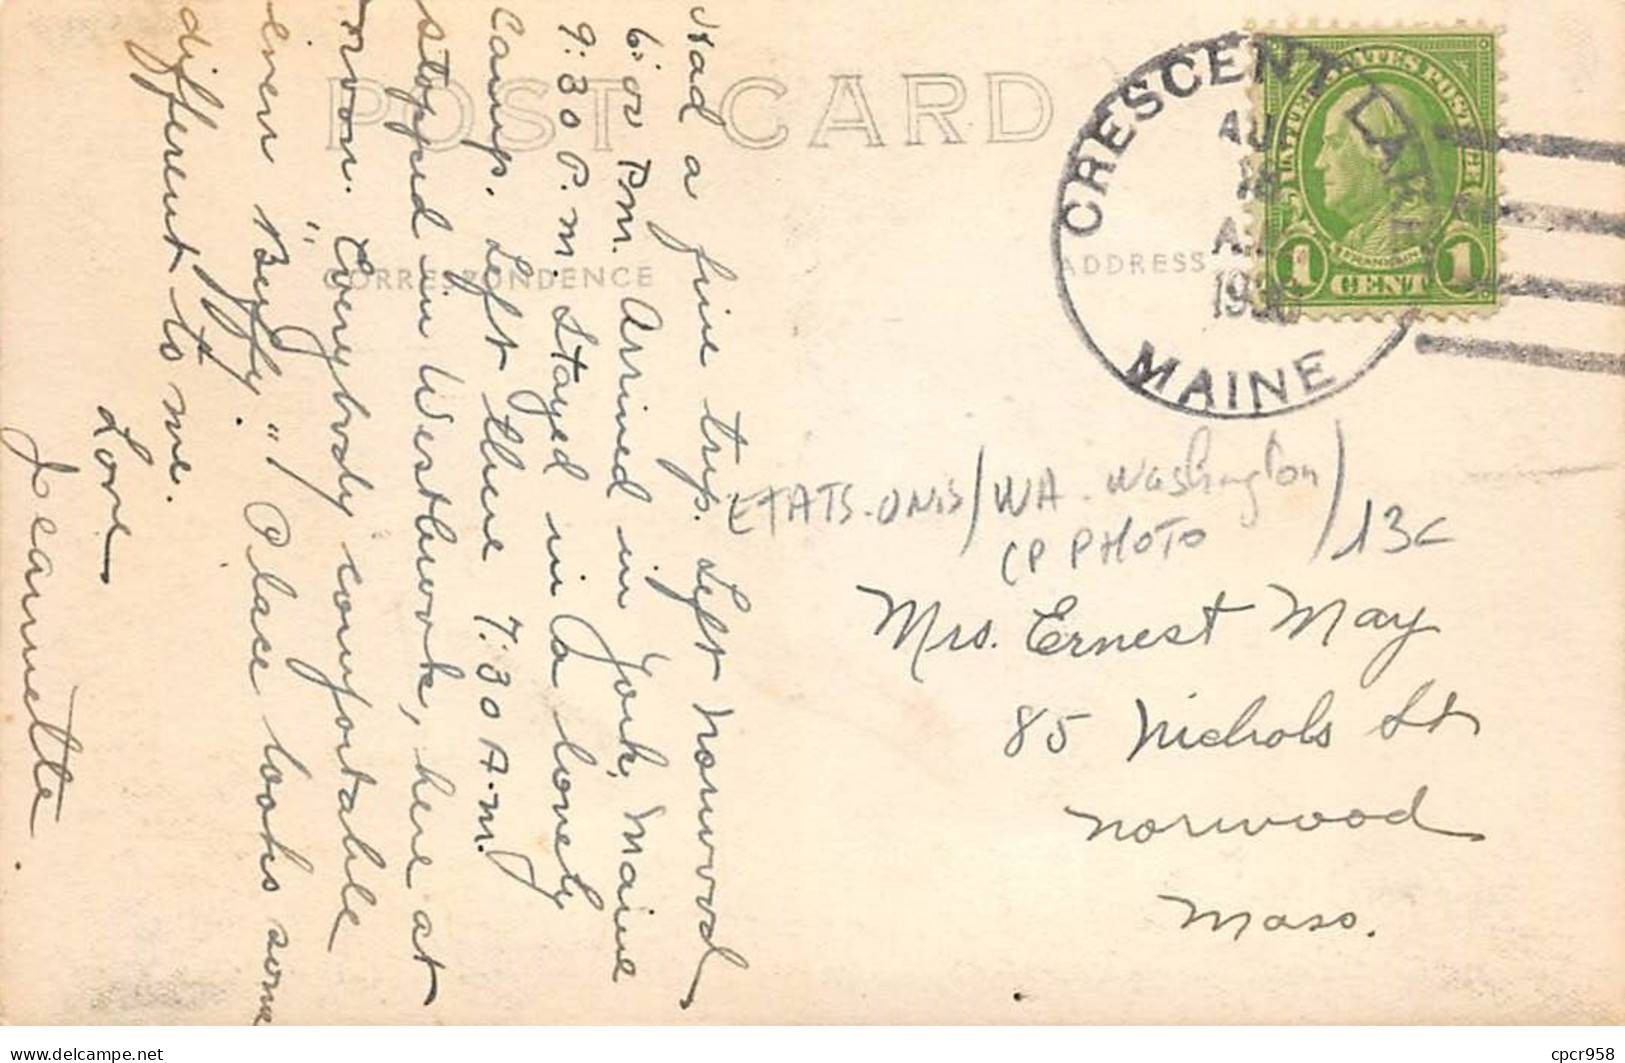 POST CARD
CORRESPONDENCE
ADDRESS
CRESCENT LAKE
AU
18
A.
193
MAINE
UNITED STATES POSTAGE
FRANKLIN
1 CENT 1
Had a fine trip. Left Norwood
6:00 P.M. Arrived in York, Maine
9:30 P.M. Stayed in a lovely
Camp. Left there 7:30 A.M.
stopped in Westbrook, here at
noon. Everybody comfortable
even "Beffy." Place looks some
different to me.
Love
Jeannette
ETATS-UNIS/WA-Washington/
CP PHOTO
13c
Mrs. Ernest May
85 Nichols St
Norwood
Mass.
delcampe.net
cpcr958